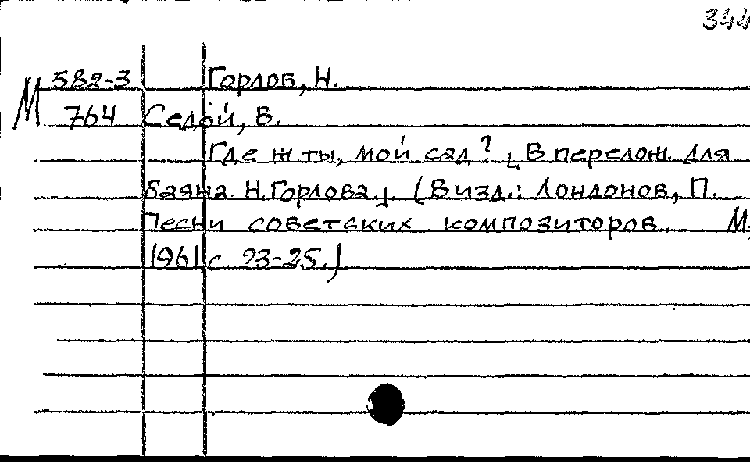 344
М 582-3 Горлов, Н.
764 Седой, В.
Где ж ты, мой сад? [В перелож. для
баяна Н. Горлова]. (В изд.: Лондонов, П.
Песни советских композиторов. М.
1961 с. 23-25.)